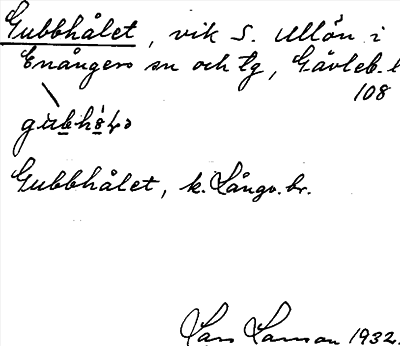 Gubbhålet, vik S. Ullön i
Enångers sn och tg, Gävleb. l
108
Gubbhålet, k. Långv. br.
Lars Larsson 1932.